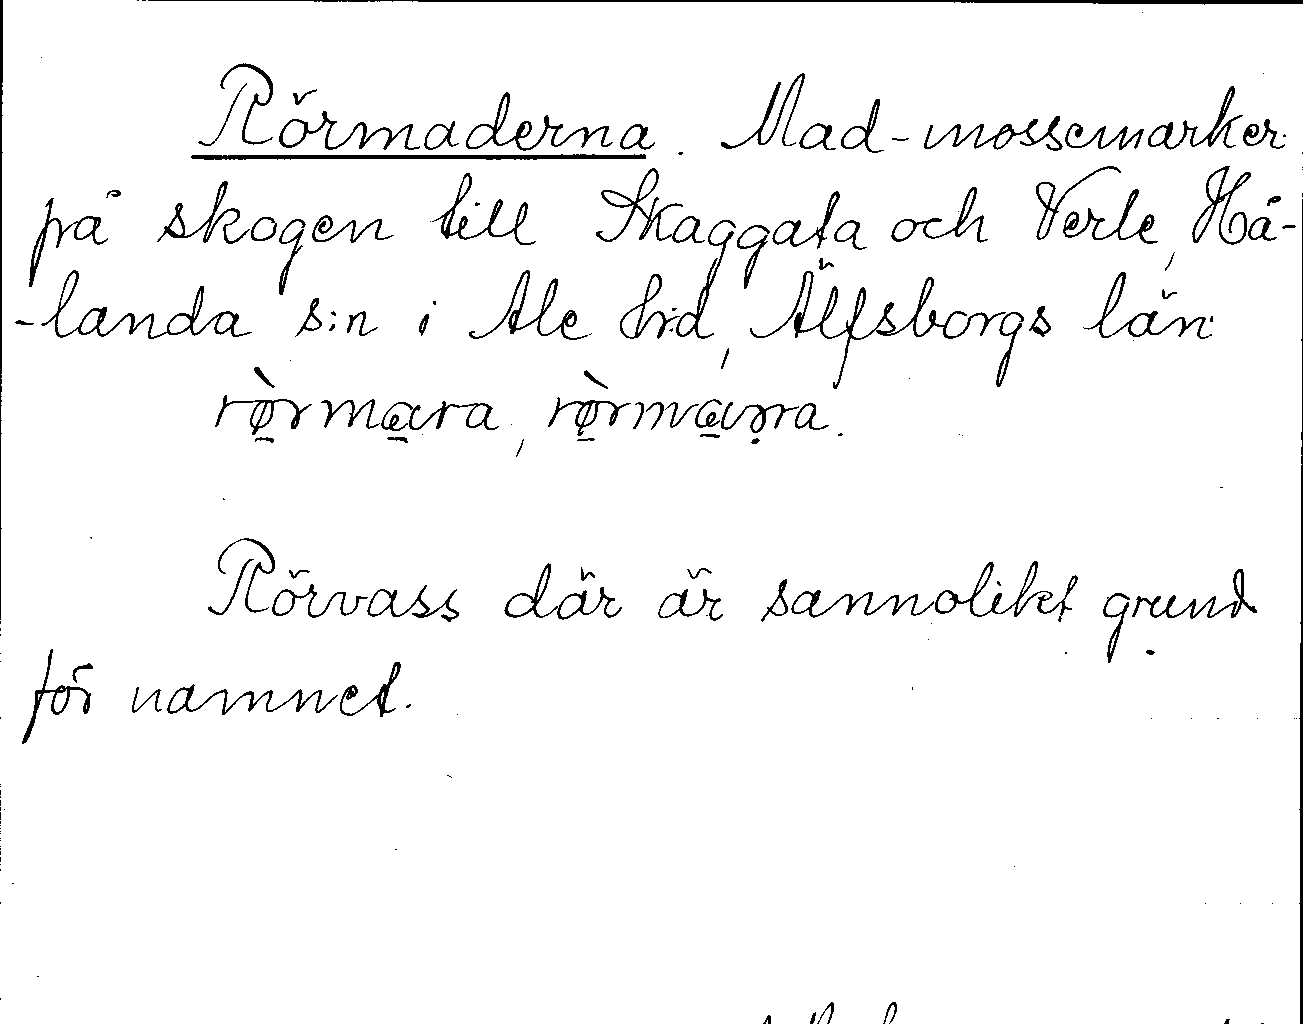 Rörmaderna. Mad-mossemarker
på skogen till Skaggata och Verle, Hå-
-landa s:n i Ale hd, Älfsborgs län
rø̱̀rma̱ra, rø̱̀rma̱ṇa.
Rörvass där är sannolikt grund
för namnet.